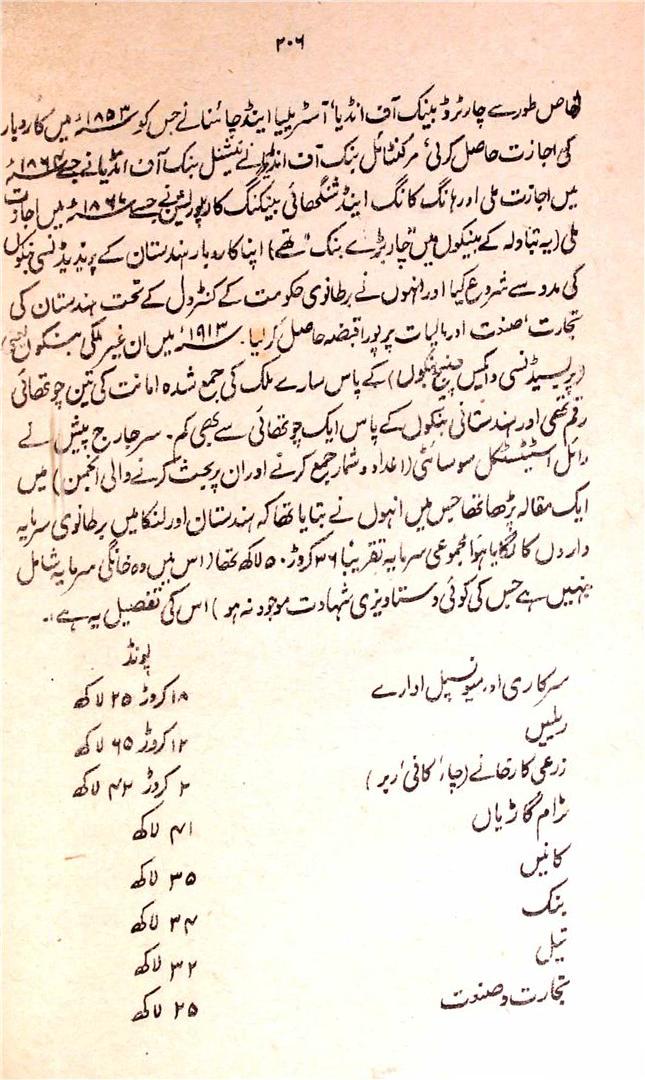 ۲۰۶
خاص طور سے چارٹرڈ بینک آف انڈیا، آسٹریلیا اینڈ چائنا نے جس کو ۱۸۵۳ء میں کاروبار
کی اجازت حاصل کرلی، مرکنٹائل بنک آف انڈیا نے نیشنل بنک آف انڈیا نے جسے ۱۸۶۴ء
میں اجازت ملی اور ہانگ کانگ اینڈ شنگھائی بینکنگ کارپوریشن نے جسے ۱۸۶۷ء میں اجازت
ملی (یہ تبادلہ کے بینکوں میں "چار بڑے بنک" تھے) اپنا کاروبار ہندستان کے پریذیڈنسی بنکوں
کی مدد سے شروع کیا اور انہوں نے برطانوی حکومت کے کنٹرول کے تحت ہندستان کی
تجارت، صنعت اور مالیات پر پورا قبضہ حاصل کرلیا۔ ۱۹۱۳ء میں ان غیر ملکی بنکوں (یعنی
پریسیڈنسی و ایکس چینج بنکوں) کے پاس سارے ملک کی جمع شدہ امانت کی تین چوتھائی
رقم تھی اور ہندستانی بنکوں کے پاس ایک چوتھائی سے بھی کم۔ سر جارج پیش نے
رائل اسٹیٹسٹکل سوسائٹی (اعداد و شمار جمع کرنے اور ان پر بحث کرنے والی انجمن) میں
ایک مقالہ پڑھا تھا جس میں انہوں نے بتایا تھا کہ ہندستان اور لنکا میں برطانوی سرمایہ
داروں کا لگایا ہوا مجموعی سرمایہ تقریباً ۳۶ کروڑ ۵۰ لاکھ تھا (اس میں وہ خانگی سرمایہ شامل
نہیں ہے جس کی کوئی دستاویزی شہادت موجود نہ ہو) اس کی تفصیل یہ ہے:۔
پونڈ
سرکاری اور میونسپل ادارے ۱۸ کروڑ ۲۵ لاکھ
ریلیں ۱۲ کروڑ ۶۵ لاکھ
زرعی کارخانے (چاء، کافی، ربر) ۲ کروڑ ۴۲ لاکھ
ٹرام گاڑیاں ۴۱ لاکھ
کانیں ۳۵ لاکھ
بنک ۳۴ لاکھ
تیل ۳۲ لاکھ
تجارت و صنعت ۲۵ لاکھ